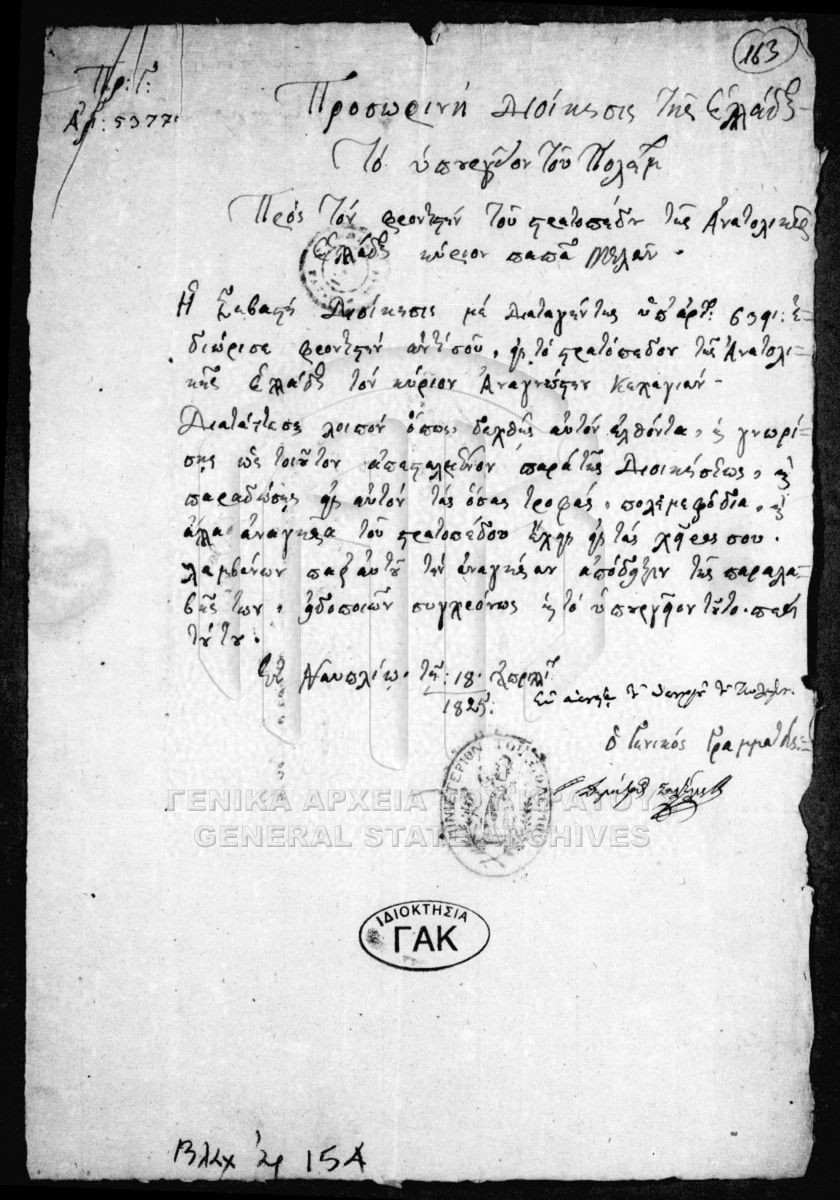 163
Περ: Γ:
Ἀρ: 5377:
Προσωρινὴ Διοίκησις τῆς Ἑλλάδος
Τὸ ὑπουργεῖον τοῦ Πολέμου
Πρὸς τὸν φροντιστὴν τοῦ στρατοπέδου τῆς Ἀνατολικῆς
Ἑλλάδος κύριον παπᾶ Μελᾶν.
Ἡ Σεβαστὴ Διοίκησις μὲ διαταγήν της ὑπ' ἀρ: 6391: ἐ-
διώρισε φροντιστὴν ἀντὶ σοῦ, εἰς τὸ στρατόπεδον τῆς Ἀνατολι-
κῆς Ἑλλάδος τὸν κύριον Ἀναγνώστην
Διατάττεσαι λοιπὸν ὅπως, δεχθῇς αὐτὸν ἐλθόντα, καὶ γνωρί-
σῃς ὡς τοιοῦτον ἀπεσταλμένον παρὰ τῆς Διοικήσεως, καὶ
παραδώσῃς εἰς αὐτὸν τὰς ὅσας τροφάς, πολεμεφόδια, καὶ
ἄλλα ἀναγκαῖα τοῦ στρατοπέδου ἔχεις εἰς τὰς χεῖρας σου.
λαμβάνων παρ' αὐτοῦ τὴν ἀναγκαίαν ἀπόδειξιν τῆς παραλα-
βῆς των, εἰδοποιῶν συγχρόνως καὶ τὸ ὑπουργεῖον τοῦτο περὶ
τούτου.
Ἐν Ναυπλίῳ τῇ: 18: Ἀπριλ:
1825:
Ὁ Γενικὸς Γραμματεὺς
ΜΙΝΙΣΤΕΡΙΟΝ ΤΟΥ ΠΟΛΕΜΟΥ
ΓΕΝΙΚΑ ΑΡΧΕΙΑ ΤΟΥ ΚΡΑΤΟΥΣ
GENERAL STATE ARCHIVES
ΙΔΙΟΚΤΗΣΙΑ
ΓΑΚ
Βλαχ 154